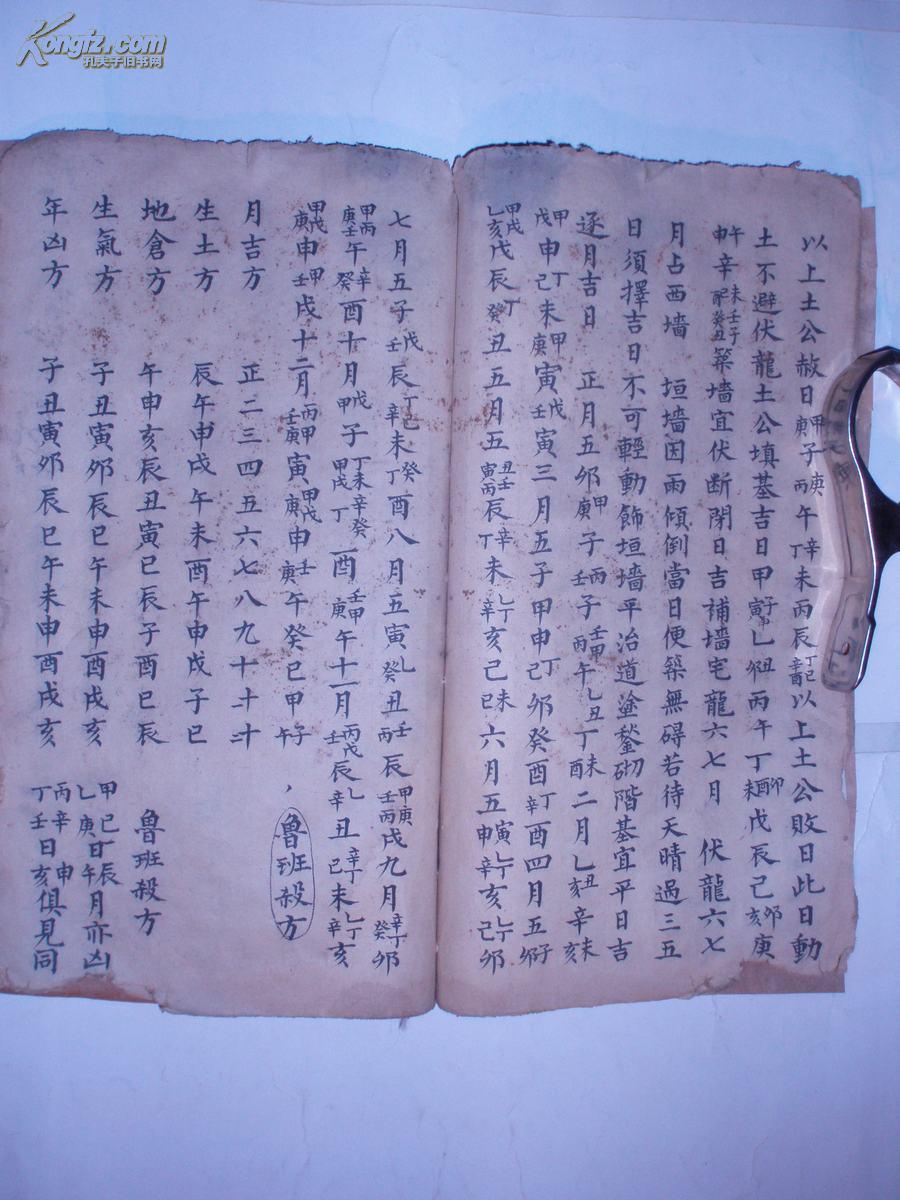 Kongfz.com
孔夫子旧书网
以上土公赦日甲庚子庚丙午辛丁未丙辰丁巳辛酉以上土公敗日此日動
土不避伏龍土公填基吉日甲子寅乙丑卯丙午丁卯酉未戊辰己卯亥庚
午申辛未酉壬子癸丑築墻宜伏断閉日吉補墻宅龍六七月 伏龍六七
月占西墻 垣墻因雨傾倒當日便築無碍若待天晴過三五
日須擇吉日不可輕動飾垣墻平治道塗鍫砌階基宜平日吉
逐月吉日 正月五卯甲庚子丙壬子壬甲丙午乙丑丁未酉二月乙丑亥辛未亥
甲戊申丁己未甲庚寅戊壬寅三月五子甲申丁己卯癸酉辛丁酉四月五子卯
甲戌乙亥戊辰丁癸丑五月五丑壬寅丙辰辛丁未乙丁辛亥己未巳六月五寅申乙丁辛亥乙丁己卯
七月五子戊壬辰丁己辛未癸丁酉八月五寅乙癸丑壬丙辰甲庚壬丙戌九月辛丁癸卯
甲丙庚壬午辛癸酉十月戊甲子丁未辛癸甲戌丁酉壬甲庚午十一月丙戊壬辰乙辛丑辛丁己未乙丁辛亥
甲戊庚申甲壬戌十二月丙甲壬庚寅甲戊庚申壬庚午癸巳甲子午 魯班殺方
月吉方 正二三四五六七八九十十十二
生土方 辰午申戌午未酉午申戌子巳
地倉方 午申亥辰丑寅巳辰子酉巳辰 魯班殺方
生氣方 子丑寅卯辰巳午未申酉戌亥 甲己丁辰乙庚日午月亦凶
年凶方 子丑寅卯辰巳午未申酉戌亥 丙辛申丁壬日亥俱見同